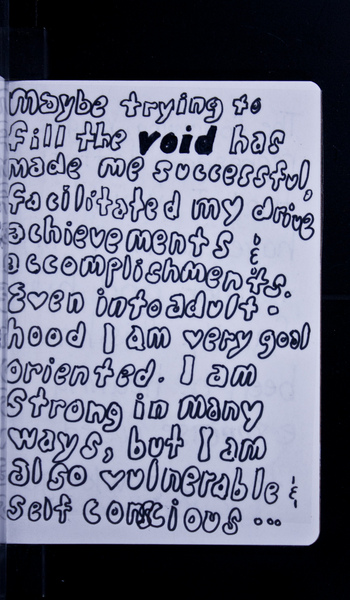 maybe trying to
fill the void has
made me successful,
facilitated my drive
achievements &
accomplishments.
Even into adult-
hood I am very goal
oriented. I am
strong in many
ways, but I am
also vulnerable &
self conscious ...